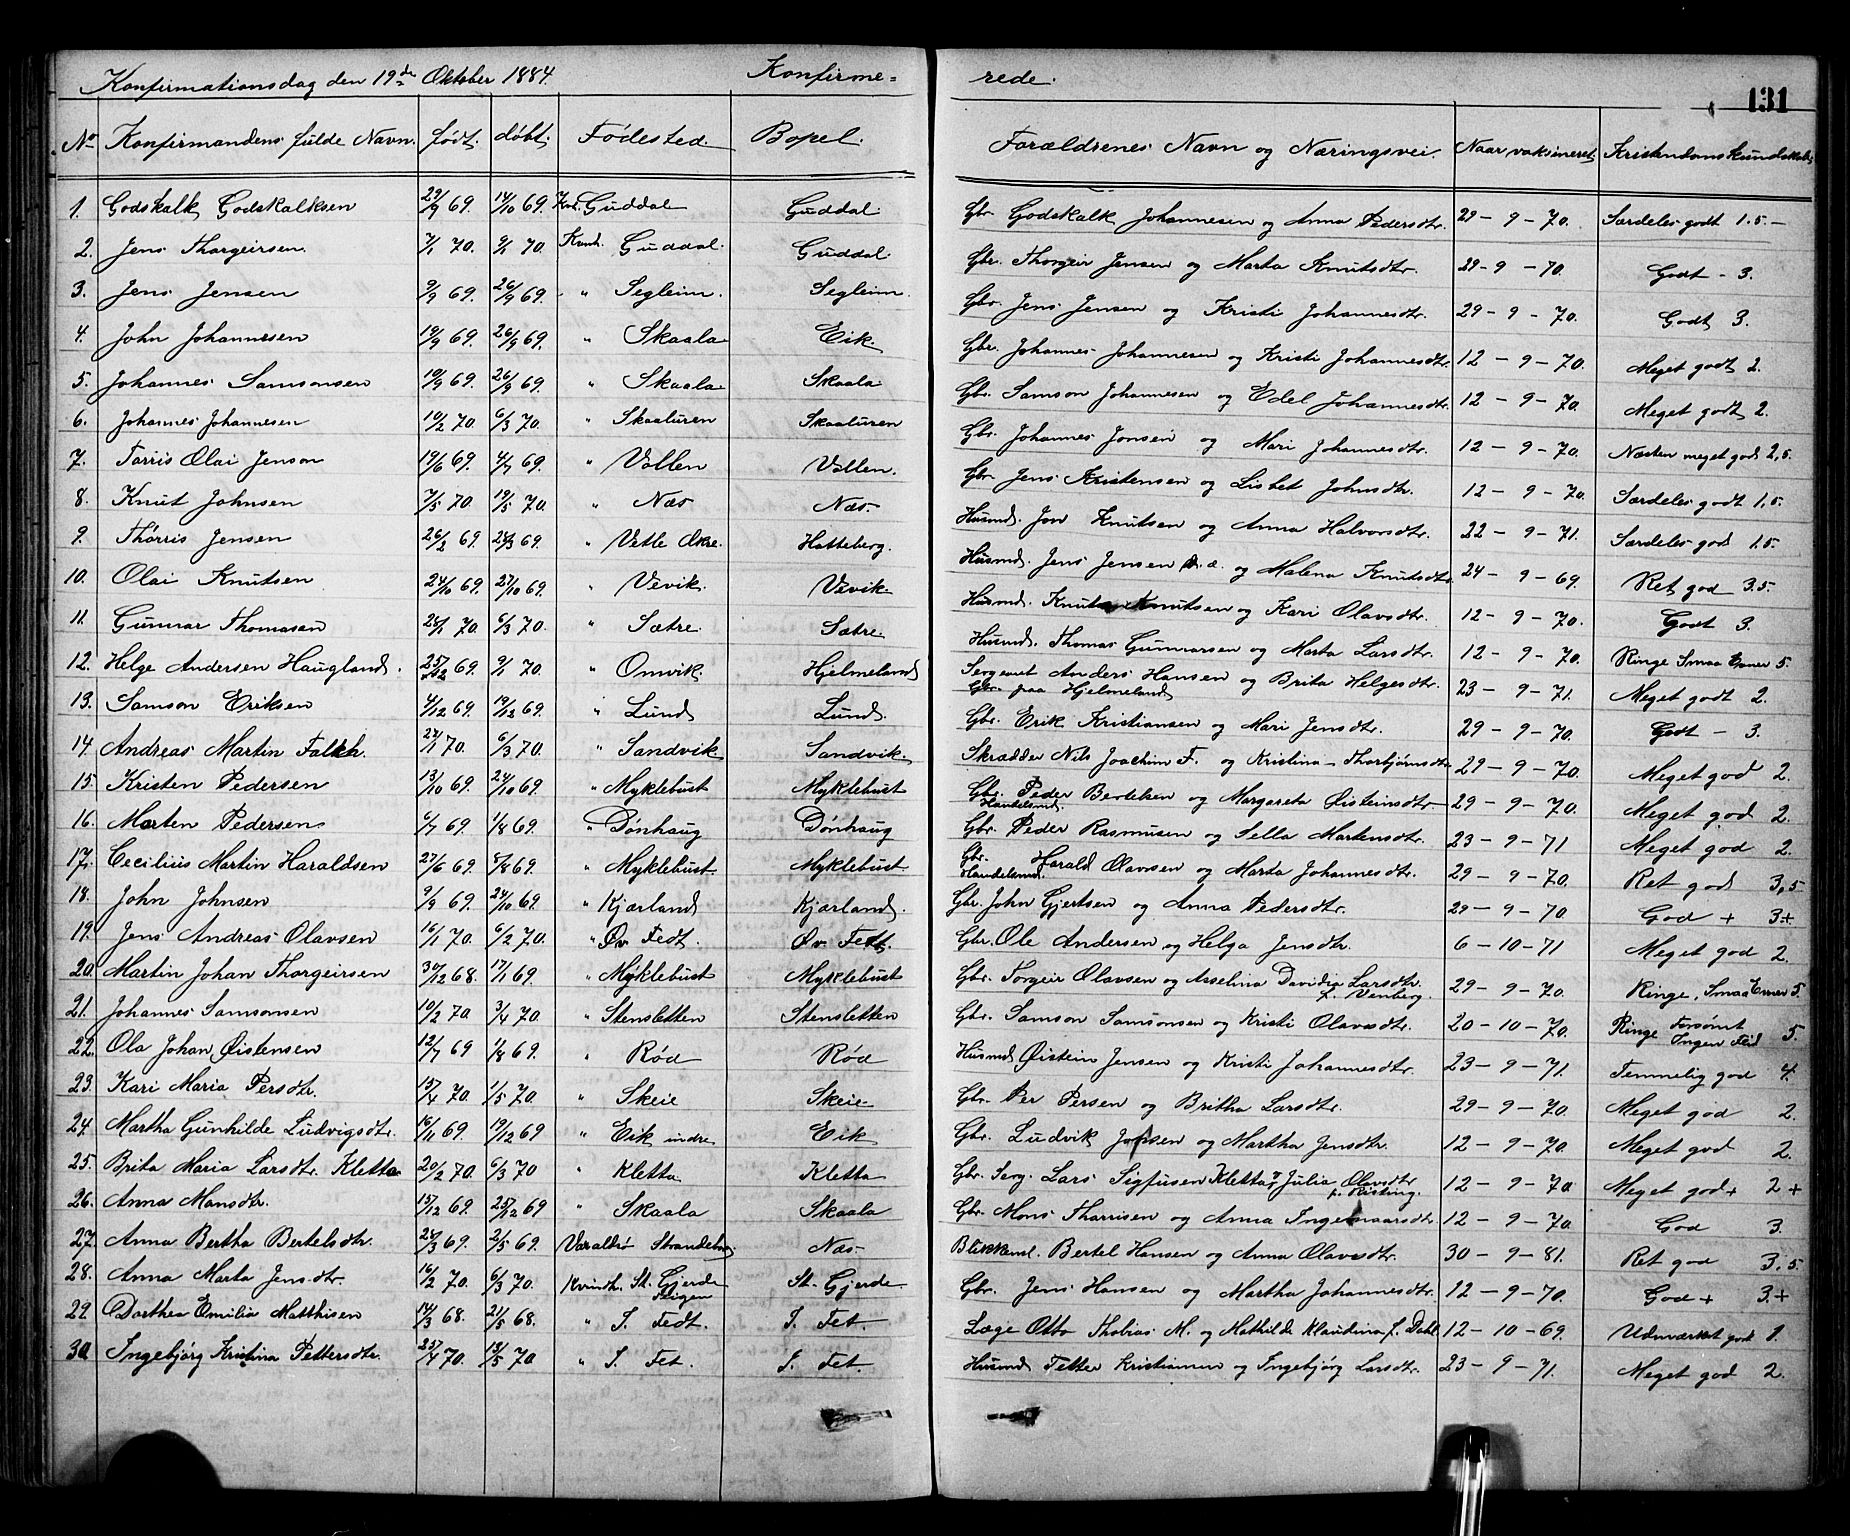 Konfirmationsdag den 19de Oktober 1884. Konfirme= rede. 131
No Konfirmandens fulde Navn. født. døbt. Fødested. Bopel. Forældrenes Navn og Næringsvei. Naar vaksineret. Kristendomskundskab.
1. Godskalk Godskalksen 29/9 69. 14/10 69. Guddal Guddal. Gbr. Godskalk Johannesen og Anna Pedersdtr. 29 - 9 - 70. Særdeles godt 1.5. -
2. Jens Thorgeirsen. 7/1 70. 9/1 70. Kvinh. Guddal. Guddal Gbr. Thorgeir Jensen og Marta Knutsdtr. 29 - 9 - 70. Godt - 3.
3. Jens Jensen 9/9 69. 26/9 69. " Segleim. Segleim. Gbr. Jens Jensen og Kristi Johannesdtr. 29 - 9 - 70. Godt 3.
4. John Johannesen 19/9 69. 26/9 69. " Skaala Eik Gbr. Johannes Johannesen og Kristi Johannesdtr. 12 - 9 - 70. Meget godt 2.
5. Johannes Samsonsen 19/9 69. 26/9 69. " Skaala Skaala Gbr. Samson Johannesen og Edel Johannesdtr. 12 - 9 - 70. Meget godt 2.
6. Johannes Johannesen 10/2 70. 6/3 70. " Skaaluren Skaaluren Gbr. Johannes Jonsen og Mari Johannesdtr. 12 - 9 - 70. Næsten meget god 2,5.
7. Torris Olai Jenson 19/6 69. 4/7 69. " Vallen Vallen. Gbr. Jens Kristensen og Lisbet Johnsdtr. 12 - 9 - 70. Særdeles godt 1.5.
8. Knut Johnsen 7/5 70. 19/5 70. " Næs Næs. Husmd. Jon Knutsen og Anna Halvorsdtr. 22 - 9 - 71. Særdeles god 1.5.
9. Thorris Jensen 26/2 69. 28/3 69. " Vetle Økre. Hatteberg. Husmd. Jens Jensen og Malena Knutsdtr. 24 - 9 - 69. Ret god 3.5.
10. Olai Knutsen 24/10 69. 27/10 69. " Vevik. Vevik. Husmd. Knut Knutsen og Kari Olavsdtr. 12 - 9 - 70. Godt 3.
11. Gunnar Thomasen 28/1 70. 6/3 70. " Sætre. Sætre. Husmd. Thomas Gunnarsen og Marta Larsdtr. 12 - 9 - 70. Ringe Smaa Evner 5.
12. Helge Andersen Haugland. 25/12 69. 9/1 70. " Omvik. Hjelmeland Sergevet Anders Hansen og Brita Helgesdtr. 23 - 9 - 71. Meget godt 2.
Gbr. paa Hjelmeland
13. Samson Eriksen 4/12 69. 19/12 69. " Lund Lund. Gbr. Erik Kristiansen og Mari Jensdtr. 29 - 9 - 70. Godt - 3.
14. Andreas Martin Falkh. 24/1 70. 6/3 70. " Sandvik. Sandvik. Skrædder Nils Joachim F. og Kristina Thorbjørnsdtr 29 - 9 - 70. Meget god 2.
15. Kristen Pedersen 13/10 69. 24/10 69. " Myklebust Myklebust Gbr. Handelsmd. Peder Bertelsen og Margareta Øisteinsdtr 29 - 9 - 70. Meget god 2.
16. Morten Pedersen 6/7 69. 1/8 69. " Dønhaug Dønhaug Gbr. Peder Rasmusen og Sella Martensdtr. 23 - 9 - 71 Meget god 2.
17. Cecilius Martin Haraldsen 27/6 69. 8/8 69. " Myklebust Myklebust Gbr. Handelsmd. Harald Olavsen og Marta Johannesdtr. 29 - 9 - 70. Ret god 3,5
18. John Johnsen 9/9 69. 24/10 69. " Kjærland Kjærland. Gbr. John Gjertsen og Anna Pedersdtr. 29 - 9 - 70. God + 3+
19. Jens Andreas Olavsen 16/1 70. 6/2 70. " Øv. Fedt. Øv. Fedt. Gbr. Ole Andersen og Helga Jensdtr. 6 - 10 - 71 Meget god 2.
20. Martin Johan Thorgeirsen 30/12 68. 17/1 69. " Myklebust Myklebust Gbr. Torgeir Olavsen og Asselina Davidia Larsdtr. f. Venberg. 29 - 9 - 70. Ringe, Smaa Evner 5.
21. Johannes Samsonsen 10/2 70 3/4 70. " Stensletten Stensletten Gbr. Samson Samsonsen og Kristi Olavsdtr. 20 - 10 - 70. Ringe Forsømt Ingen Flid 5.
22. Ola Johan Øistensen 12/7 69 1/8 69. " Rød Rød Husmd Øistein Jensen og Kristi Johannesdtr. 23 - 9 - 71. Temmelig god 4.
23. Kari Maria Persdtr. 15/4 70. 1/5 70 " Skeie Skeie Gbr. Per Persen og Britha Larsdtr. 29 - 9 - 70. Meget god 2.
24. Martha Gunhilde Ludvigsdtr. 16/11 69. 19/12 69 " Eik indre Eik Gbr. Ludvik Jonsen og Martha Jensdtr. 12 - 9 - 70. Meget god 2.
25. Brita Maria Larsdtr. Kletta 20/2 70. 6/3 70 " Kletta. Kletta Gbr. Serg. Lars Sigfusen Kletta, Julia Olavsdtr f. Risting. 12 - 9 - 70 Meget god + 2 +
26. Anna Monsdtr. 15/12 69. 25/12 69 " Skaala Skaala Gbr. Mons Tharrisen og Anna Ingemarsdtr 12 - 9 - 70. God 3.
27. Anna Bertha Bertelsdtr. 24/3 69. 2/5 69. Varaldsø Strandebarm Næs. Blikkensl. Bertel Hansen og Anna Olavsdtr. 30 - 9 - 81. Ret god 3.5.
28. Anna Marta Jensdtr. 16/2 70. 6/3 70. Kvindh. St. Gjerde St. Gjerde Gbr. Jens Hansen og Martha Johannesdtr. 12 - 9 - 70. God + 3.+
29. Dorthea Emilia Matthisen 14/3 68. 21/5 68. " I. Fedt. I. Fet. Læge Otto Thobias M. og Mathilde Klaudina f. Dahl 12 - 10 - 69. Udmærket godt 1.
30 Ingebjørg Kristina Pettersdtr. 23/4 70. 13/5 70 " I. Fet. I. Fet. Husmd Petter Kristiansen og Ingebjørg Larsdtr. 23 - 9 - 71. Meget god 2.